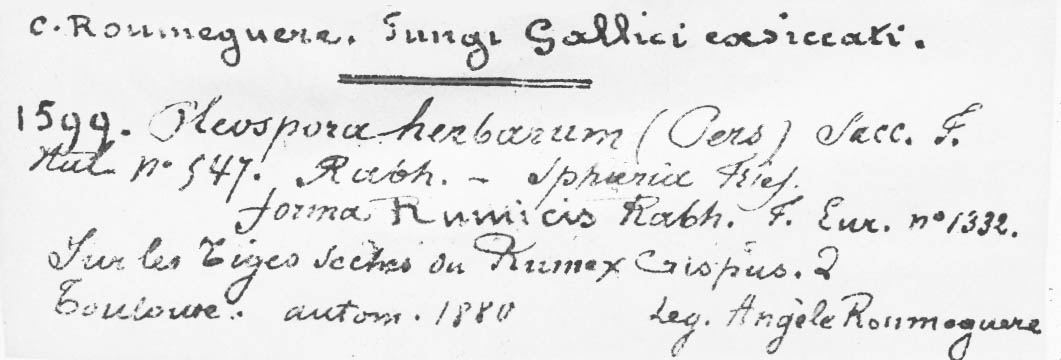 C. Roumeguere. Fungi Gallici exsiccati.
1599. Pleospora herbarum (Pers) Sacc. F.
Ital. nº 547. Rabh. – Sphæria Fries.
forma Rumicis Rabh. F. Eur. nº 1332.
Sur les Tiges sèches du Rumex Crispus.
Toulouse. autom. 1880 Leg. Angèle Roumeguere